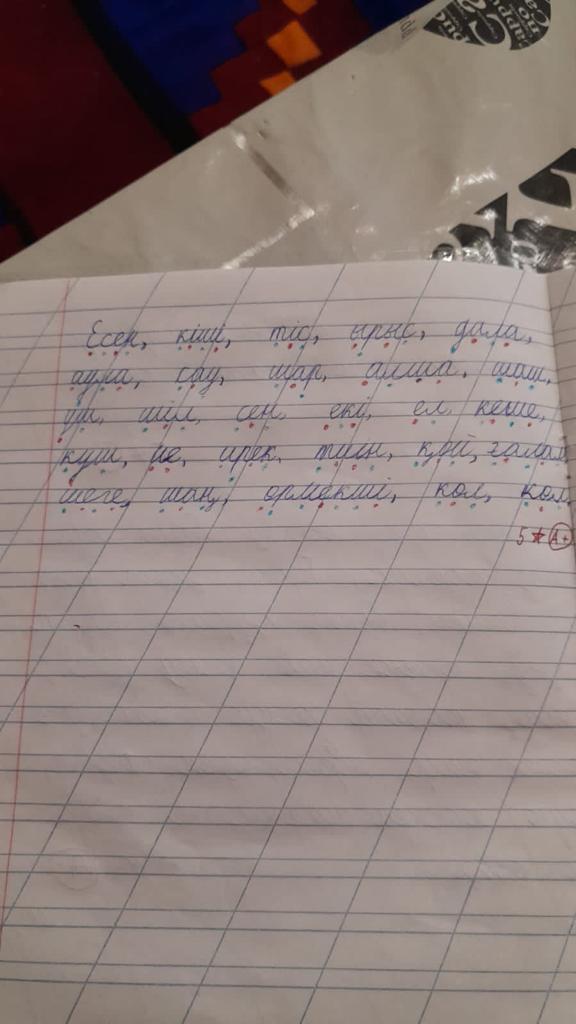 Есен, кіші, тіс, ырыс, дала,
аура, сау, шар, алша, шаш,
үш, шіл, сен, екі, ел, кеше,
күш, ие, ирек, тиын, қой, ғалам
шеге, шаң, өрмекші, кол, қол
5 А+